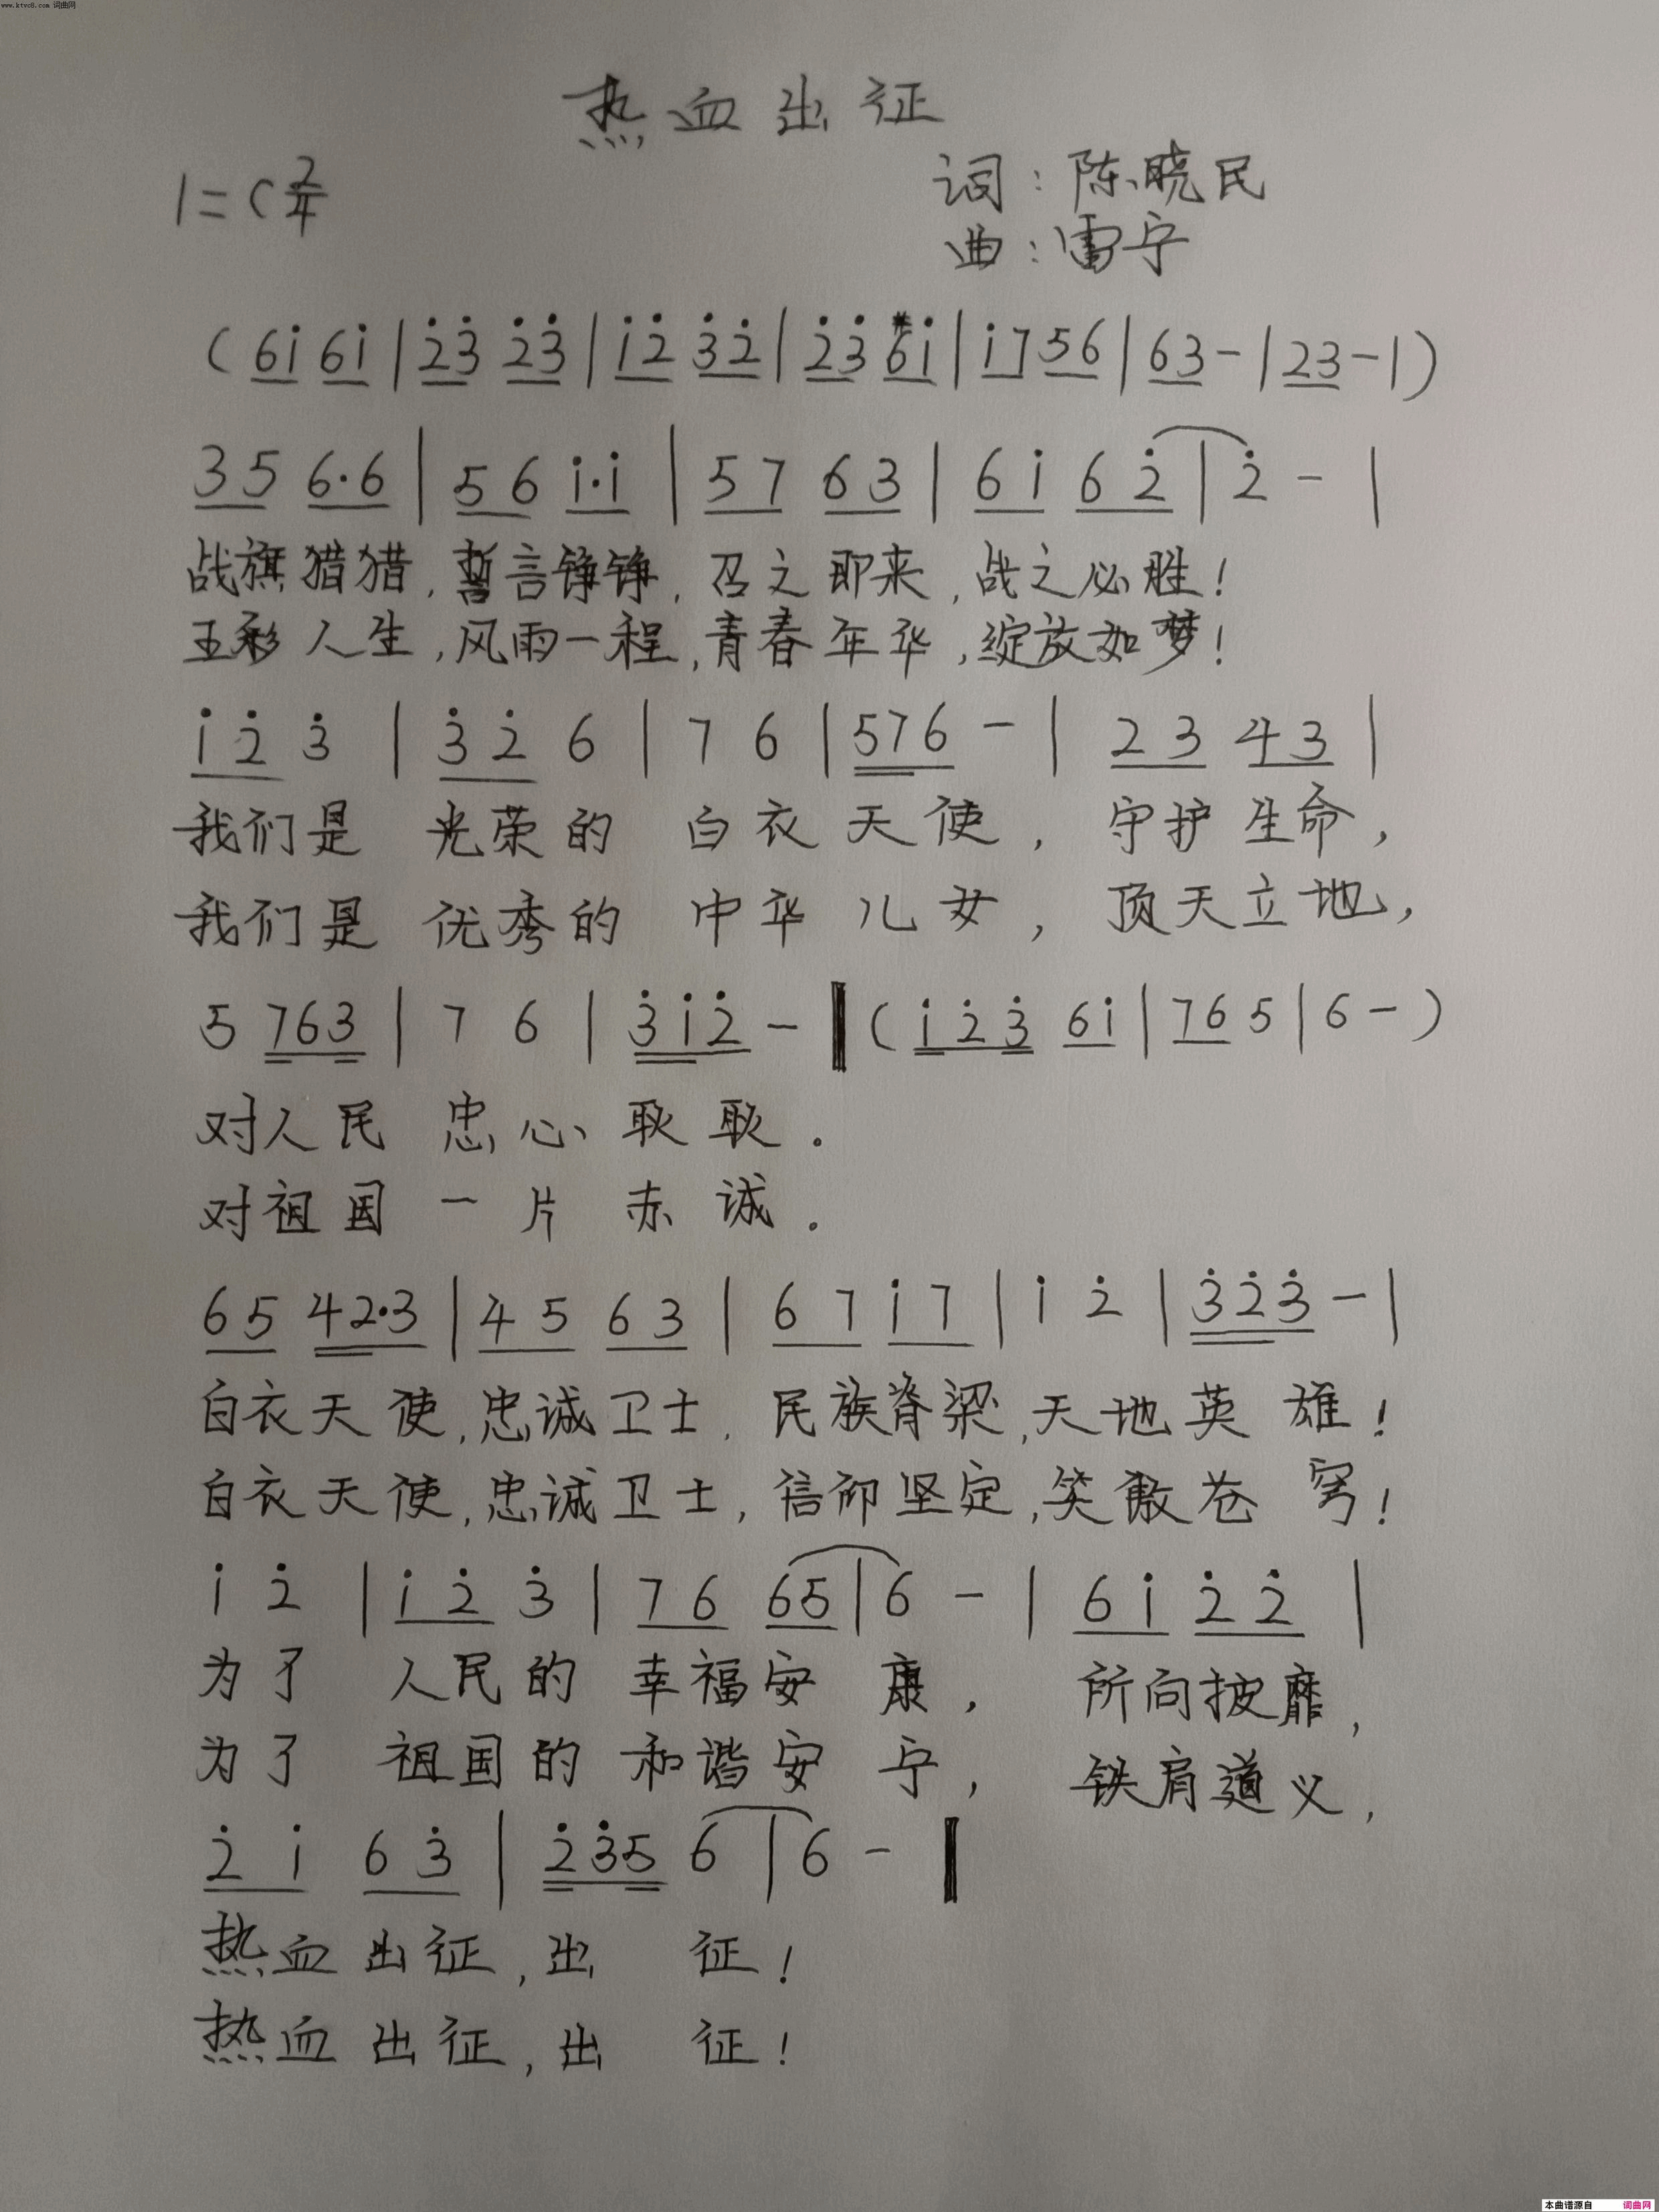 www.ktvc8.com 词曲网
热血出征
1=C 2/4
词:陈晓民
曲:雷宁
(6i 6i|2̇3̇ 2̇3̇|i2̇ 3̇2̇|2̇3̇ #6i|i7 56|63-|23-|)
35 6·6|56 i·i|57 63|6i 62̇|2̇-|
战旗猎猎,誓言铮铮,召之即来,战之必胜!
五彩人生,风雨一程,青春年华,绽放如梦!
i2̇ 3̇|3̇2̇ 6|7 6|576-|23 43|
我们是 光荣的 白衣天使,守护生命,
我们是 优秀的 中华儿女,顶天立地,
5 763|7 6|3̇i2̇-‖(i2̇3̇ 6i|76 5|6-)
对人民 忠心耿耿.
对祖国 一片赤诚.
65 42·3|45 63|67 i7|i 2̇|3̇2̇3̇-|
白衣天使,忠诚卫士,民族脊梁,天地英雄!
白衣天使,忠诚卫士,信仰坚定,笑傲苍穹!
i 2̇|i2̇ 3̇|76 65|6-|6i 2̇2̇|
为了 人民的 幸福安康,所向披靡,
为了 祖国的 和谐安宁,铁肩道义,
2̇i 63̇|2̇3̇5 6|6-‖
热血出征,出 征!
热血出征,出 征!
本曲谱源自 词曲网